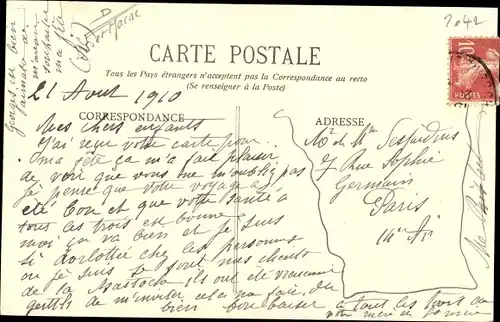 2042
CARTE POSTALE
Tous les Pays étrangers n'acceptent pas la Correspondance au recto
(Se renseigner à la Poste)
21 Aout 1910
CORRESPONDANCE
ADRESSE
Mes chers enfants
j'ai reçu votre carte pour
ma fête ça m'a fait plaisir
de voir que vous ne m'oubliez pas
je pense que votre voyage a
été bon et que votre santé à
tous les trois est bonne
moi ça va bien et je suis
si dorlotée chez les personnes
ou je suis ce sont mes clients
de la ils ont été vraiment
gentils de m'inviter cela me fait du
bien bon baiser à tous les trois
votre mère
Mr & Mme Desjardins
7 Rue Sophie
Germain
Paris
14e Ar
10
POSTES
m'avoir
souhaiter
ma fête